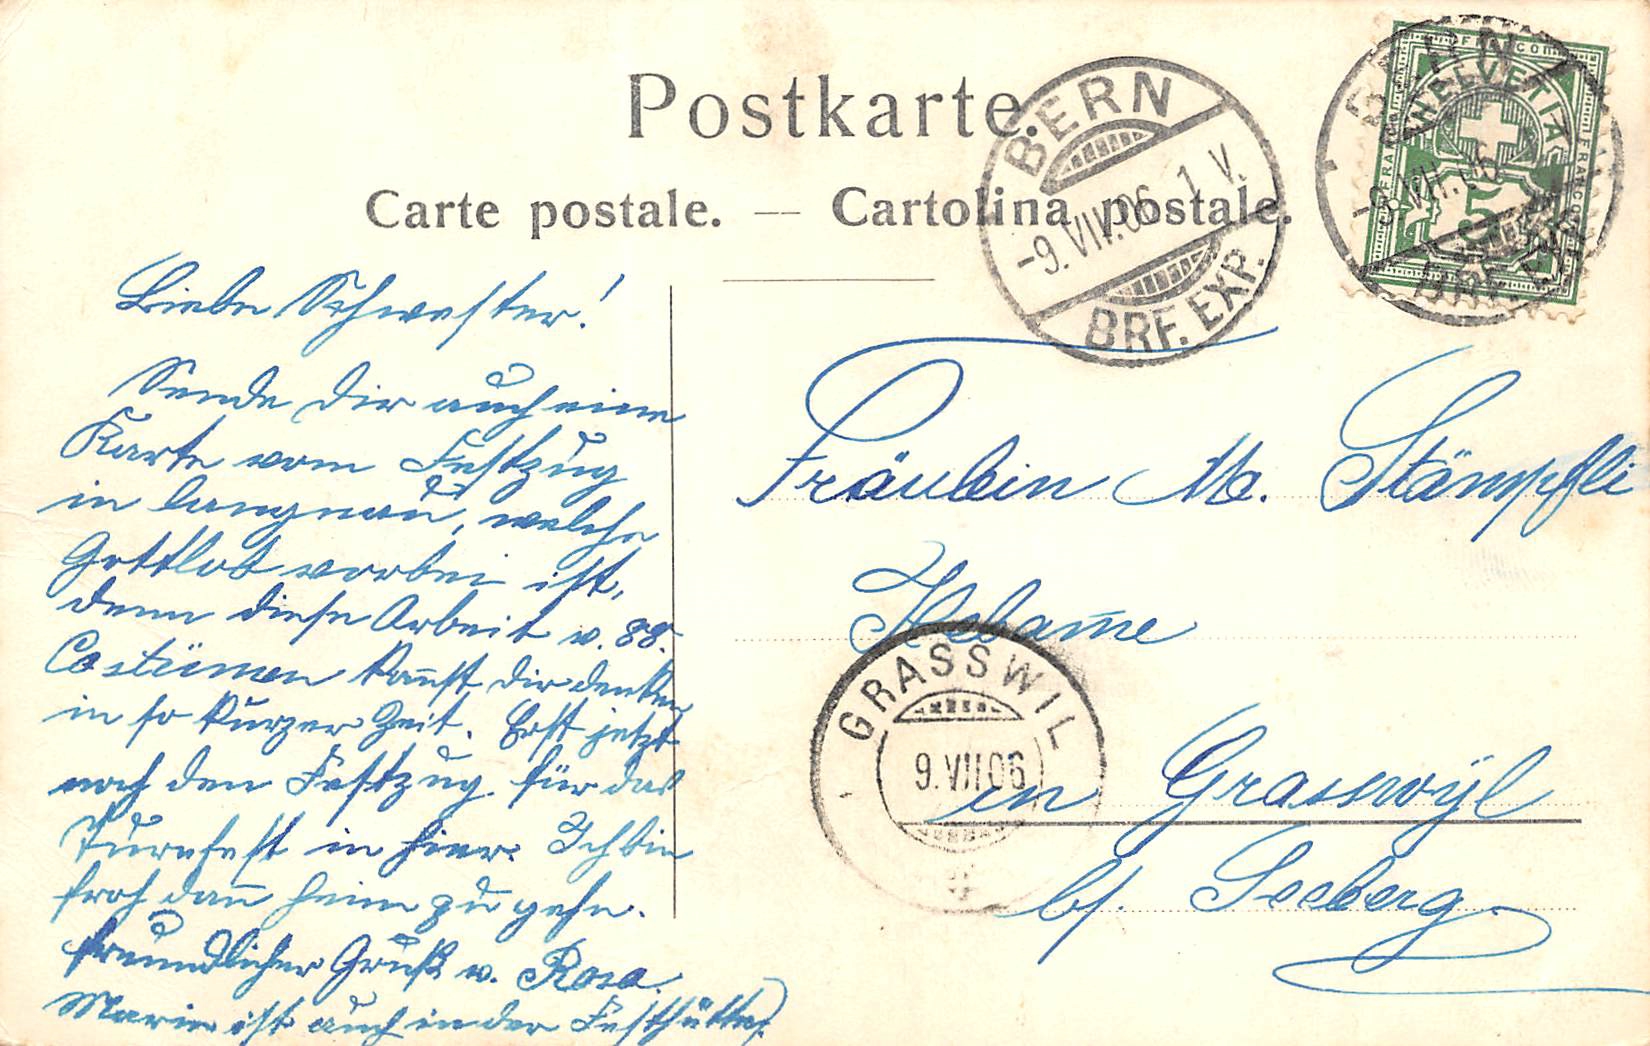 Postkarte.
Carte postale. — Cartolina postale.
BERN
-9. VII. 06. 1 V.
BRF. EXP.
BERN
-9. VII. 06
BRF. EXP.
FRANCO
HELVETIA
FRANCO
5
Liebe Schwester!
Sende dir auch eine
Karte vom Festzug
in Langnau, welche
Gottlob vorbei ist,
denn diese Arbeit v. 88.
Costümen kan̄st dir denken
in so kurzer Zeit. Erst jetzt
noch den Festzug für das
Turnfest in hier. Ich bin
froh dan̄ heim zu gehn.
freundlicher Gruß v. Rosa.
Marie ist auch in der Festhütte.
Fräulein M. Stämpfli
Hebam̄e
in Grasswÿl
b/. Seeberg
GRASSWIL
9. VII. 06